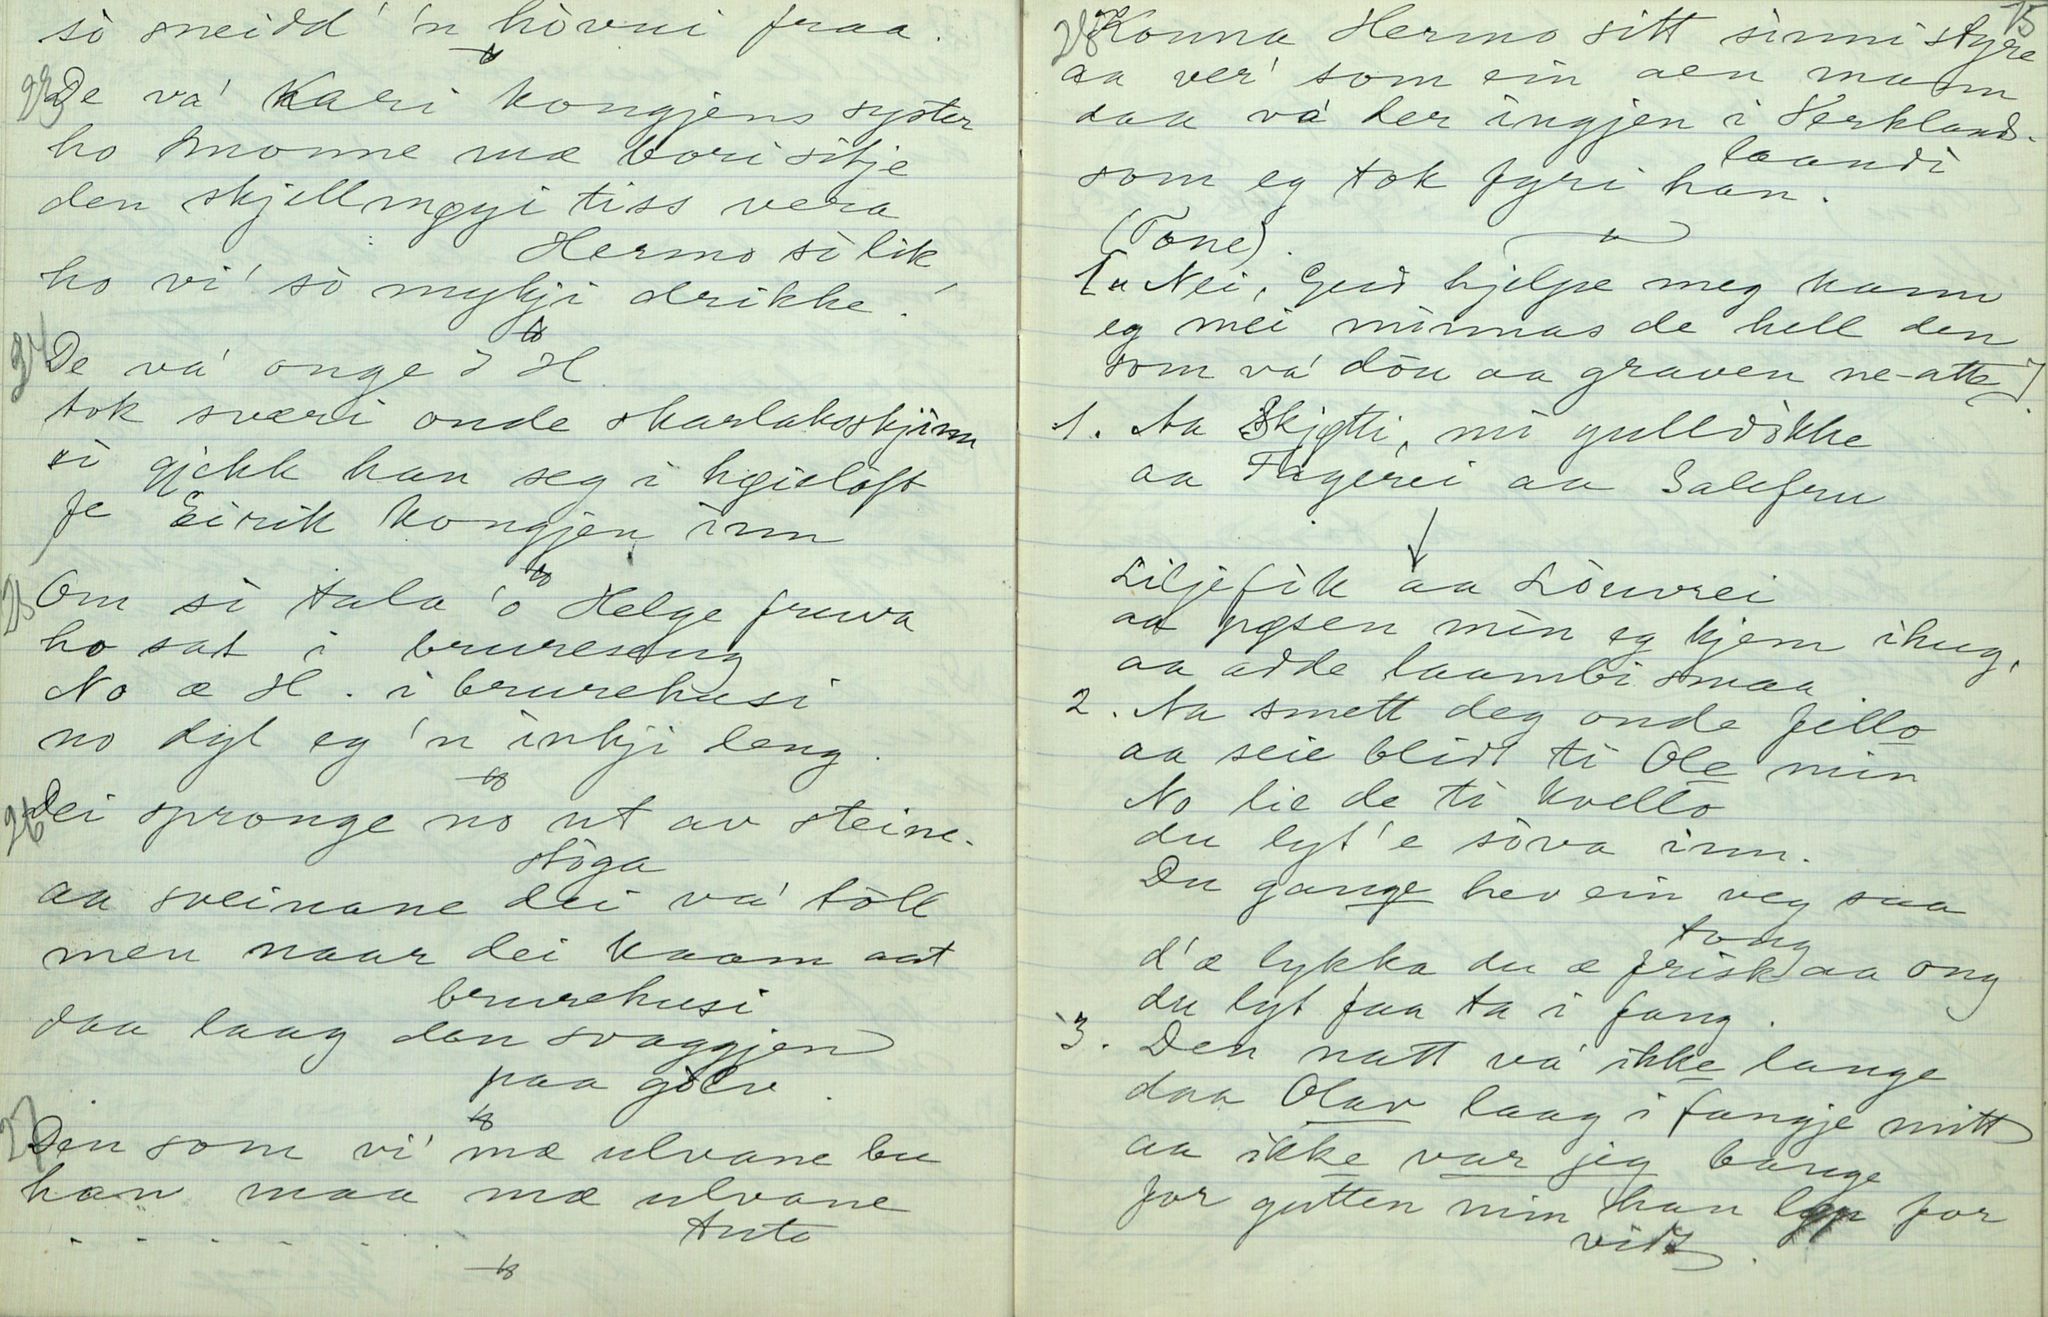 sò sneidd' 'n hòvui fraa.
23 De va' Kari kongjens syster
ho monne mæ bori sitje
den skjellmøyi tiss vera
Hermo sì lik,
ho vi' sò mykji drikke!
24 De va' onge H
tok sværi onde skarlaksskjinn
sì gjekk han seg i høieloft
fe Eirik kongjen inn
25 Om sì tala 'o Helge fruva
ho sat i brureseng
No æ H. i brurehusi
no dyl eg 'n inkji leng.
26 Dei spronge no ut av steine-
stòga
aa sveinane dei va' tòll
men naar dei kaam aat
brurehusi
daa laag den svaggjen
paa gòlv.
27 Den som vi' mæ ulvane bu
han maa mæ ulvane
tuta
15
28 Konna Hermo sitt sinni styre
aa ver' som ein aen mann
daa va' der ingjen i Herkland-
laandi
som eg tok fyri han.
(Tone).
[Nei, Gud hjelpe meg kann
eg mei minnas de hell den
som va' dòu aa graven ne-atte].
1. Aa Skjøtti, mi gulldokke
aa Fagerei aa Salefru
Liljefik aa Lòuvrei
aa pøsen min eg kjem ihug,
aa adde laambi smaa
2. Aa smett deg onde fillo
aa seie blidt ti Ole min
No lie de ti kvello
du lyt'e sòva inn.
Du gange hev ein veg saa
tong
d'æ lykka du æ frisk aa ong
du lyt faa ta i fang.
3. Den natt va' ikke lange
daa Olav laag i fangje mitt
aa ikke var jeg bange
for gutten min han for
vidt.